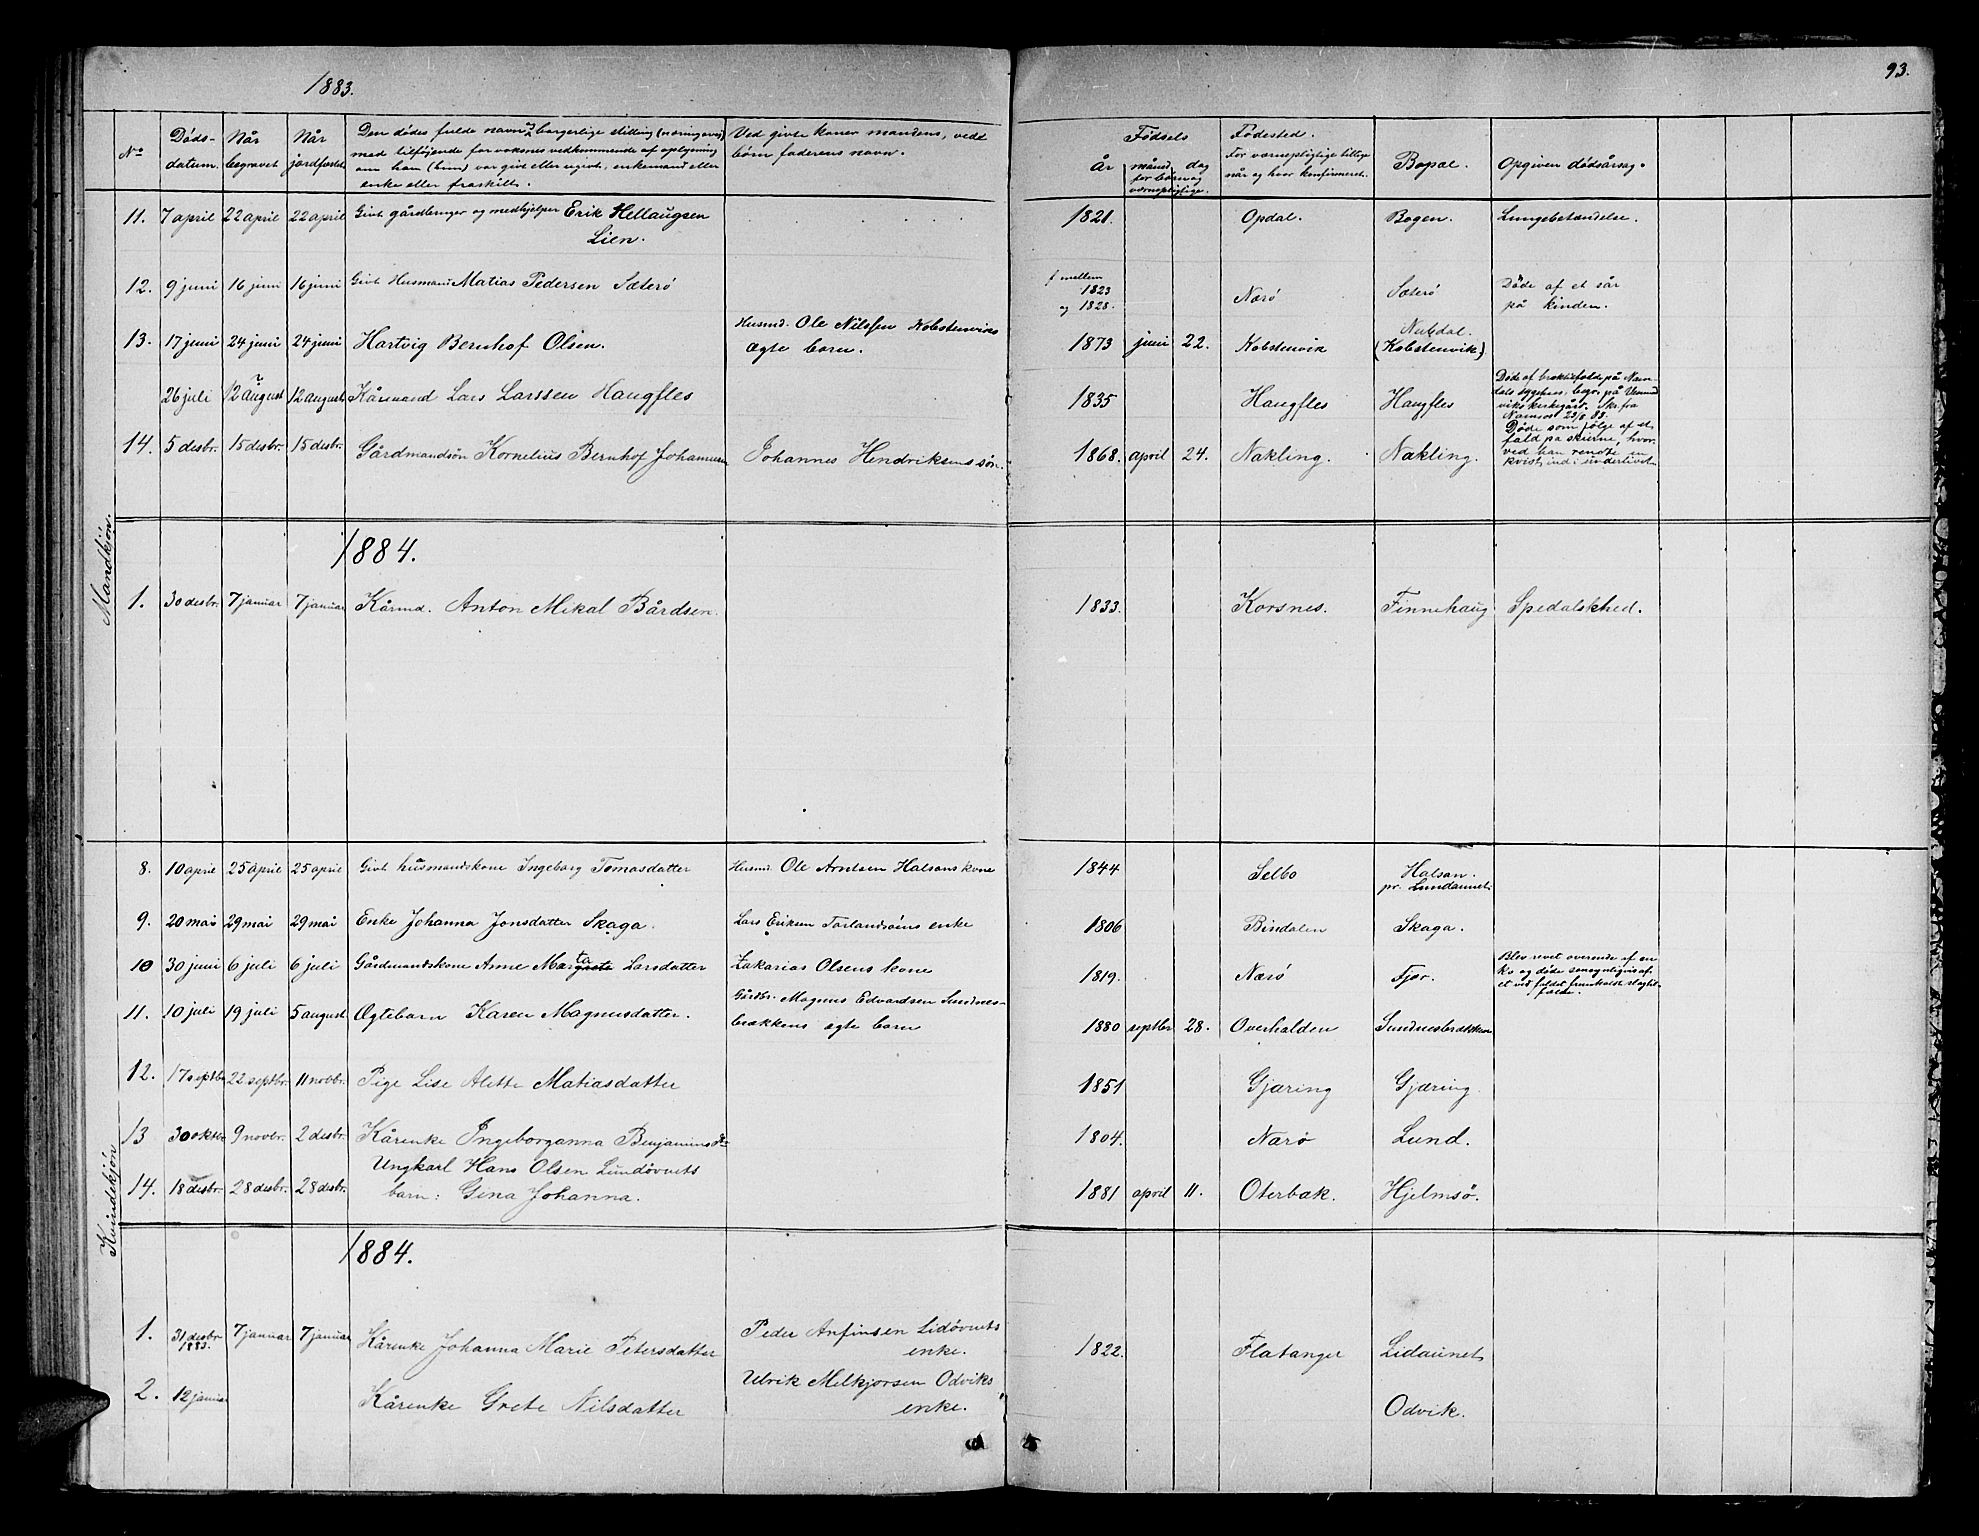 1883.
93.
No
Døds-
datum.
Når
begravet
Når
jordfæstet
Den dødes fulde navn og borgerlige stilling (næringsvei)
med tilføiende for voksnes vedkommende af oplysning
om han (hun) var givt eller ugivt, enkemand eller
enke eller fraskilt.
Ved givte koner mandens, ved
børn faderens navn.
Fødsels
År
måned
for børn og
værnepligtige.
dag
Fødested.
For værnepligtige tillige
når og hvor konfirmeret.
Bopæl.
Opgiven dødsårsag.
Mandkjøn.
11. 7 april 22 april 22 april Givt gårdbruger og medhjelper Erik Hellaugsen
Lien.
1821. Opdal. Bogen. Lungebetændelse.
12. 9 juni 16 juni 16 juni Givt Husmand Matias Pedersen Sæterø
f mellem
1823
og 1828. Nærø Sæterø Døde af et sår
på kinden.
13. 17 juni 24 juni 24 juni Hartvig Bernhof Olsen. Husmd. Ole Nilssen Kobstenviks
ægte barn.
1873 juni 22. Kobstenvik
(Kobstenvik)
26 juli 12 august 12 august Kårmand Lars Larssen Haugfles
1835 Haugfles Haugfles
på Nam-
dals sygehus, begr. på
viks kirkegård. Skr. fra
Namsos 23/8 83.
14. 5 desbr. 15 desbr. 15 desbr. Gårdmandsøn Kornelius Bernhof Johannesen Johannes Hendriksens søn.
1868. april 24. Nakling. Nakling. Døde som følge af et
fald på skierne, hvor-
ved han rendte en
kvist ind i underlivet
1884.
1. 30 desbr. 7 januar 7 januar Kårmd. Anton Mikal Bårdsen.
1833. Korsnes. Finnehaug Spedalskhed.
Kvindekjøn
8. 10 april 25 april 25 april Givt husmandskone Ingeborg Tomasdatter Husmd. Ole Arntsen Halsans kone
1844 Selbo Halsan.
pr. Lundaunet.
9. 20 mai 29 mai 29 mai Enke Johanna Jonsdatter Skaga. Lars Eriksen Torlandsøiens enke
1806 Bindalen Skaga.
10 30 juni 6 juli 6 juli Gårdmandskone Anne Margrete ta Larsdatter Zakarias Olsens kone
1819. Nærø Fjær. Blev revet overende af en
ko og døde sansynligvis af
et ved faldet fremkaldt slagtil-
fælde.
11. 10 juli 19 juli 5 august Ægtebarn Karen Magnusdatter. Gårdbr. Magnus Edvardsen Sundnes-
brækkens ægte barn
1880 septbr 28. Overhalden Sundnesbrækken
12. 17 septbr 22 septbr. 11 novbr. Pige Lise Alette Matiasdatter
1851 Gjæring Gjæring.
13 30 oktbr 9 novbr. 2 desbr. Kårenke Ingeborganna Benjaminsdr
1804. Nærø Lund.
14. 18 desbr. 28 desbr. 28 desbr. Ungkarl Hans Olsen Lundøvnets
barn: Gina Johanna.
1881 april 11. Oterbæk. Hjelmsø.
1884.
1. 31 desbr
1883. 7 januar 7 januar Kårenke Johanna Marie Petersdatter Peder Anfinsen Lidøvnets
enke.
1822. Flatanger Lidaunet
2. 12 januar Kårenke Grete Nilsdatter Ulrik Melkjorsen Odviks
enke.
Odvik.